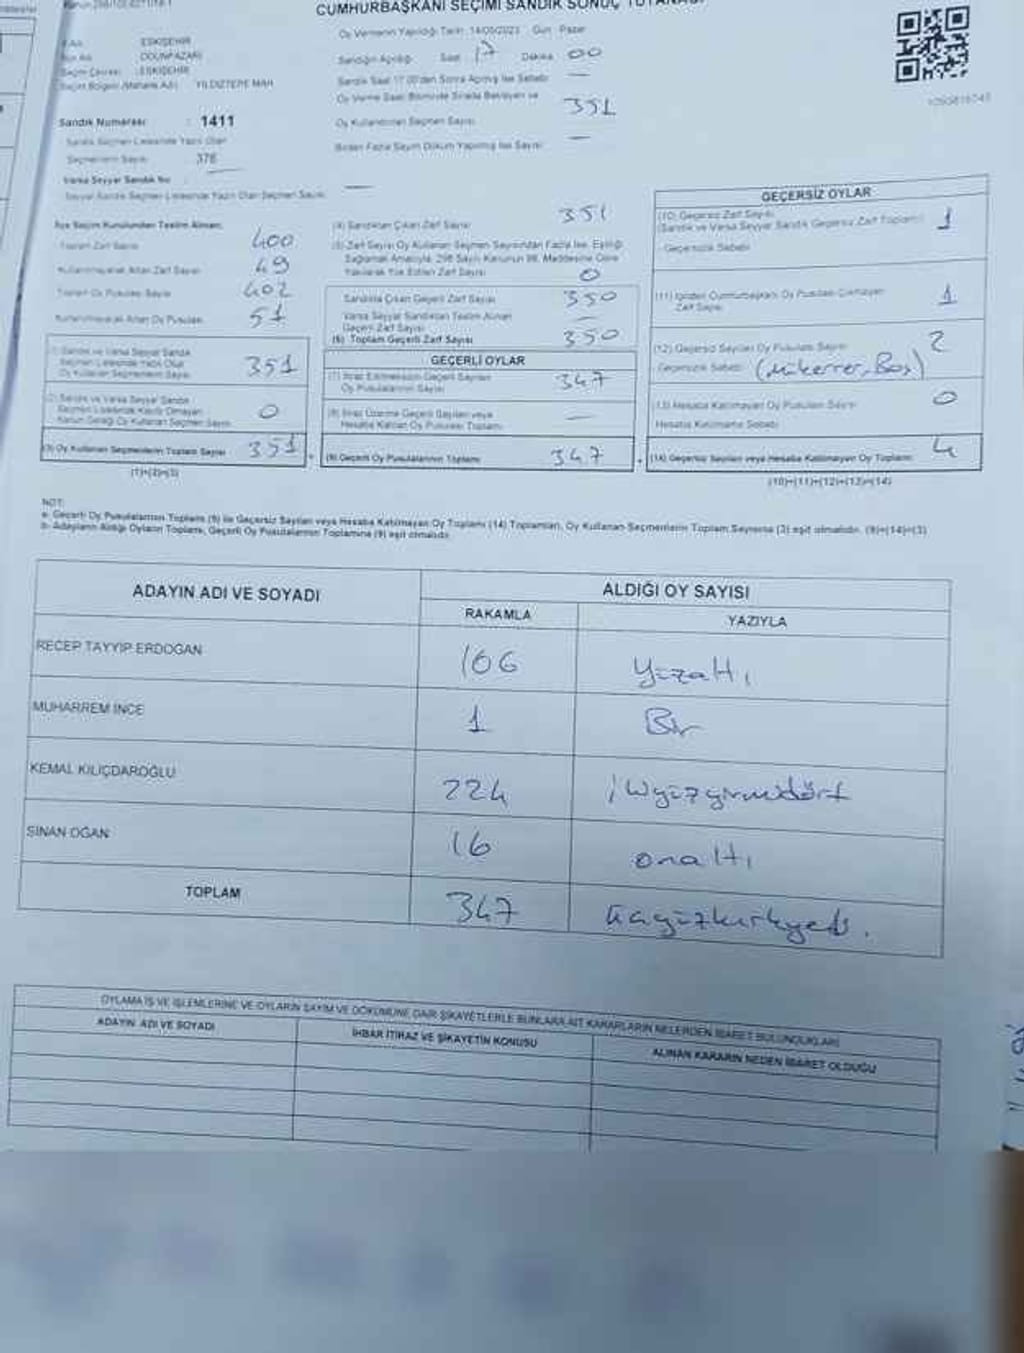 CUMHURBAŞKANI SEÇİMİ SANDIK SONUÇ TUTANAĞI
İl Adı : ESKİŞEHİR
İlçe Adı : ODUNPAZARI
Seçim Çevresi : ESKİŞEHİR
Seçim Bölgesi (Mahalle Adı) : YILDIZTEPE MAH
Sandık Numarası : 1411
Sandık Seçmen Listesinde Yazılı Olan
Seçmenlerin Sayısı 376
Varsa Seyyar Sandık No :
Seyyar Sandık Seçmen Listesinde Yazılı Olan Seçmen Sayısı —
Oy Vermenin Yapıldığı Tarih: 14/05/2023 Gün: Pazar
Sandığın Açıldığı Saat 17 Dakika 00
Sandık Saat 17.00'den Sonra Açılmış İse Sebebi —
Oy Verme Saati Bitiminde Sırada Bekleyen ve
Oy Kullandırılan Seçmen Sayısı 351
Birden Fazla Sayım Döküm Yapılmış İse Sayısı —
İlçe Seçim Kurulundan Teslim Alınan;
Toplam Zarf Sayısı 400
Kullanılmayarak Artan Zarf Sayısı 49
Toplam Oy Pusulası Sayısı 402
Kullanılmayarak Artan Oy Pusulası 51
(1) Sandık ve Varsa Seyyar Sandık
Seçmen Listesinde Yazılı Olup
Oy Kullanan Seçmenlerin Sayısı 351
(2) Sandık ve Varsa Seyyar Sandık
Seçmen Listesinde Kayıtlı Olmayan
Kanun Gereği Oy Kullanan Seçmen Sayısı 0
(3) Oy Kullanan Seçmenlerin Toplam Sayısı 351
(1)+(2)=(3)
(4) Sandıktan Çıkan Zarf Sayısı 351
(5) Zarf Sayısı Oy Kullanan Seçmen Sayısından Fazla İse, Eşitliği
Sağlamak Amacıyla, 298 Sayılı Kanunun 98. Maddesine Göre
Yakılarak Yok Edilen Zarf Sayısı 0
Sandıkta Çıkan Geçerli Zarf Sayısı 350
Varsa Seyyar Sandıktan Teslim Alınan
Geçerli Zarf Sayısı —
(6) Toplam Geçerli Zarf Sayısı 350
GEÇERLİ OYLAR
(7) İtiraz Edilmeksizin Geçerli Sayılan
Oy Pusulalarının Sayısı 347
(8) İtiraz Üzerine Geçerli Sayılan veya
Hesaba Katılan Oy Pusulası Toplamı —
(9) Geçerli Oy Pusulalarının Toplamı 347
GEÇERSİZ OYLAR
(10) Geçersiz Zarf Sayısı
(Sandık ve Varsa Seyyar Sandık Geçersiz Zarf Toplamı) 1
Geçersizlik Sebebi
(11) İçinden Cumhurbaşkanı Oy Pusulası Çıkmayan
Zarf Sayısı 1
(12) Geçersiz Sayılan Oy Pusulası Sayısı 2
Geçersizlik Sebebi (Mükerrer, Boş)
(13) Hesaba Katılmayan Oy Pusulası Sayısı 0
Hesaba Katılmama Sebebi
(14) Geçersiz Sayılan veya Hesaba Katılmayan Oy Toplamı 4
(10)+(11)+(12)+(13)=(14)
NOT:
a- Geçerli Oy Pusulalarının Toplamı (9) ile Geçersiz Sayılan veya Hesaba Katılmayan Oy Toplamı (14) Toplamları, Oy Kullanan Seçmenlerin Toplam Sayısına (3) eşit olmalıdır. (9)+(14)=(3)
b- Adayların Aldığı Oyların Toplamı, Geçerli Oy Pusulalarının Toplamına (9) eşit olmalıdır.
ADAYIN ADI VE SOYADI ALDIĞI OY SAYISI
RAKAMLA YAZIYLA
RECEP TAYYİP ERDOĞAN 106 yüzaltı
MUHARREM İNCE 1 Bir
KEMAL KILIÇDAROĞLU 224 ikiyüzyirmidört
SİNAN OĞAN 16 onaltı
TOPLAM 347 üçyüzkırkyedi.
OYLAMA İŞ VE İŞLEMLERİNE VE OYLARIN SAYIM VE DÖKÜMÜNE DAİR ŞİKAYETLERLE BUNLARA AİT KARARLARIN NELERDEN İBARET BULUNDUKLARI
ADAYIN ADI VE SOYADI İHBAR İTİRAZ VE ŞİKAYETİN KONUSU ALINAN KARARIN NEDEN İBARET OLDUĞU